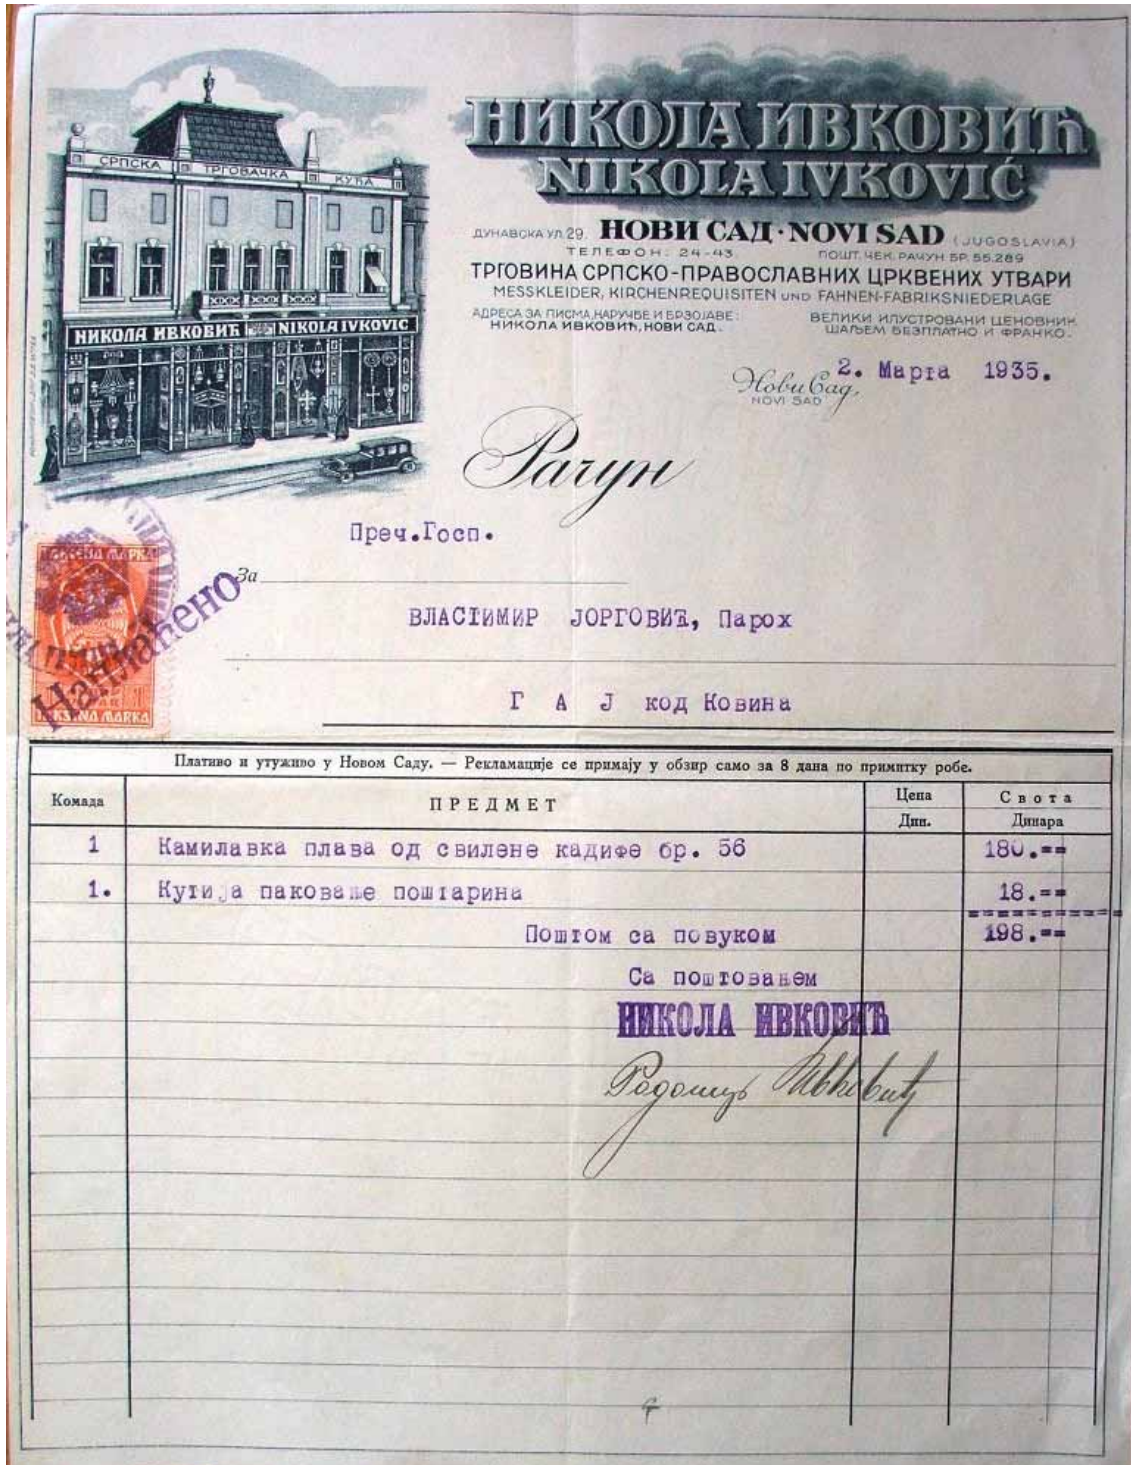 СРПСКА ТРГОВАЧКА КУЋА
НИКОЛА ИВКОВИЋ NIKOLA IVKOVIC
НИКОЛА ИВКОВИЋ
NIKOLA IVKOVIĆ
ДУНАВСКА УЛ. 29. НОВИ САД · NOVI SAD (JUGOSLAVIA)
ТЕЛЕФОН: 24-43. ПОШТ. ЧЕК. РАЧУН БР. 55.289
ТРГОВИНА СРПСКО-ПРАВОСЛАВНИХ ЦРКВЕНИХ УТВАРИ
MESSKLEIDER, KIRCHENREQUISITEN UND FAHNEN-FABRIKSNIEDERLAGE
АДРЕСА ЗА ПИСМА, НАРУЧБЕ И БРЗОЈАВЕ: ВЕЛИКИ ИЛУСТРОВАНИ ЦЕНОВНИК
НИКОЛА ИВКОВИЋ, НОВИ САД. ШАЉЕМ БЕЗПЛАТНО И ФРАНКО.
Нови Сад, 2. Марта 1935.
NOVI SAD
Рачун
Преч.Госп.
За
ВЛАСТИМИР ЈОРГОВИЋ, Парох
Г А Ј код Ковина
МАРКА
Наплаћено
MARKA
Плативо и утуживо у Новом Саду. — Рекламације се примају у обзир само за 8 дана по примитку робе.
Комада ПРЕДМЕТ Цена Свота
Дин. Динара
1 Камилавка плава од свилене кадифе бр. 56 180.==
1. Кутија паковање поштарина 18.==
Поштом са повуком 198.==
Са поштовањем
НИКОЛА ИВКОВИЋ
Ивковић